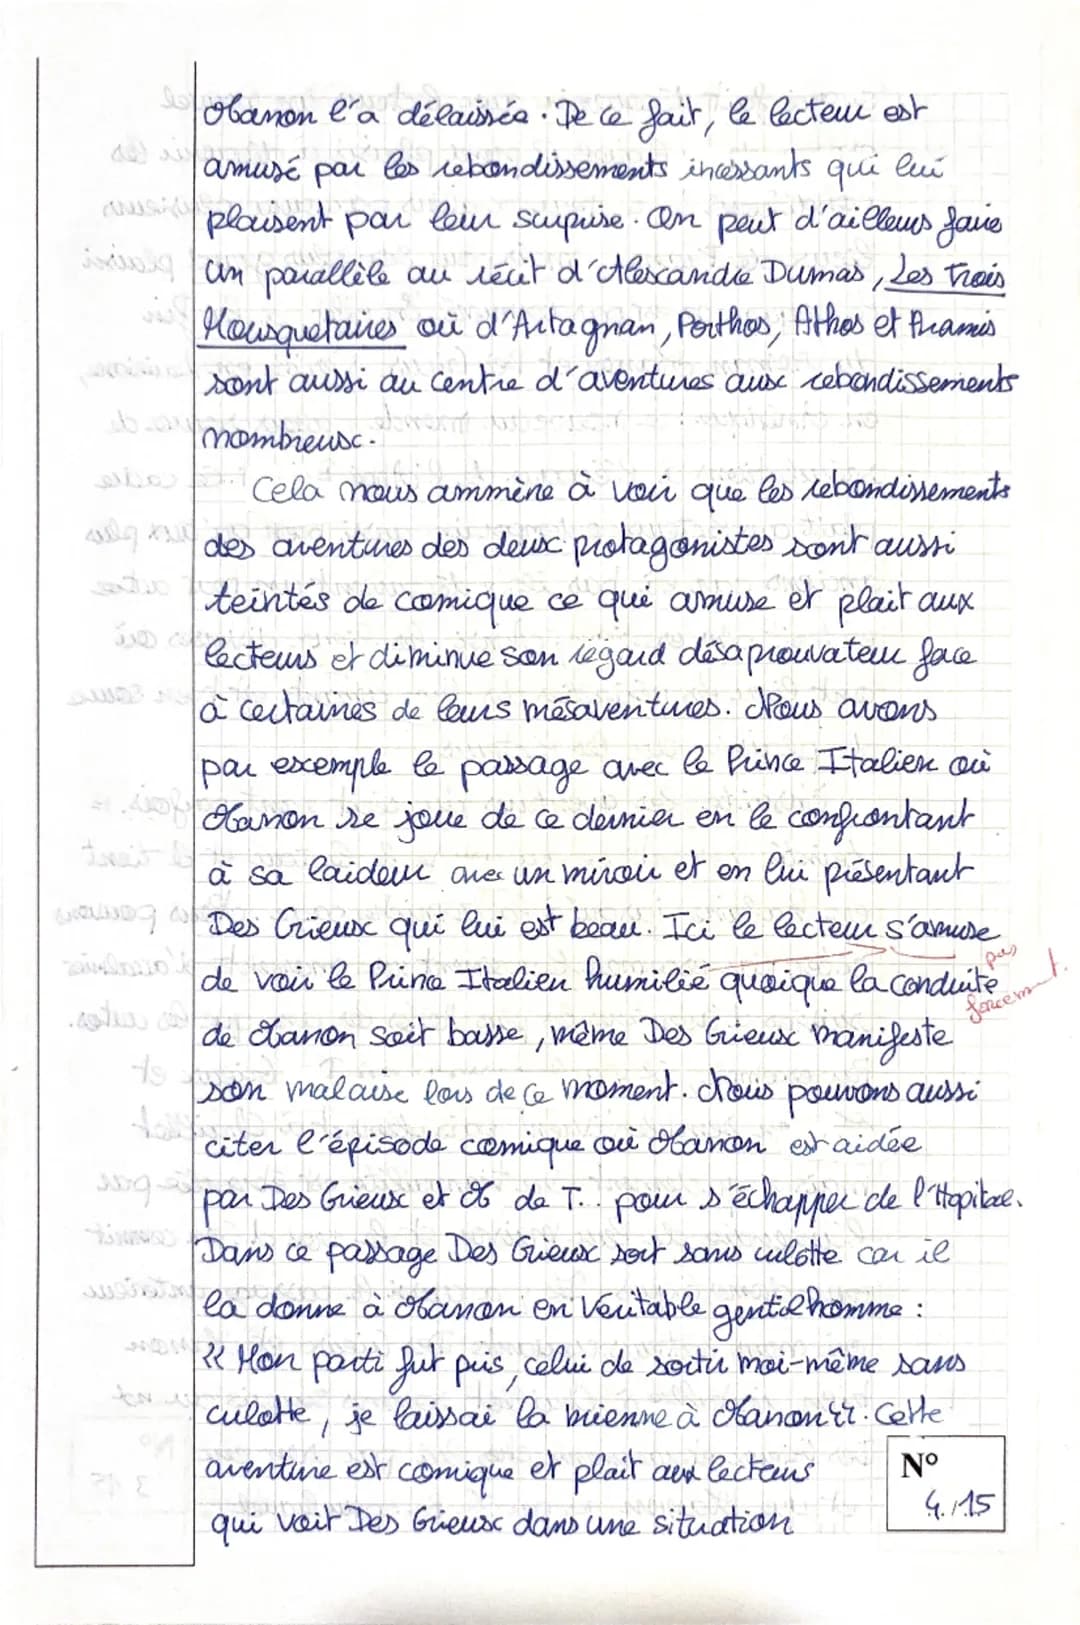 Manon l'a délaissée. De ce fait, le lecteur est
amusé par les rebondissements incessants qui lui
plaisent par leur surprise. On peut d'ailleurs faire
un parallèle au récit d'Alexandre Dumas, Les Trois
Mousquetaires où d'Artagnan, Porthos, Athos et Aramis
sont aussi au centre d'aventures aux rebondissements
nombreux.
Cela nous ammène à voir que les rebondissements
des aventures des deux protagonistes sont aussi
teintés de comique ce qui amuse et plait aux
lecteurs et diminue son regard désaprouvateur face
à certaines de leurs mésaventures. Nous avons
par exemple le passage avec le Prince Italien où
Manon se joue de ce dernier en le confrontant
à sa laideur avec un miroir et en lui présentant
Des Grieux qui lui est beau. Ici le lecteur s'amuse
pas forcément.
de voir le Prince Italien humilié quoique la conduite
de Manon soit basse, même Des Grieux manifeste
son malaise lors de ce moment. Nous pouvons aussi
citer l'épisode comique où Manon est aidée
par Des Grieux et M de T.. pour s'échapper de l'Hopital.
Dans ce passage Des Grieux sort sans culotte car il
la donne à Manon en véritable gentilhomme :
« Mon parti fut pris, celui de sortir moi-même sans
culotte, je laissai la mienne à Manon ». Cette
aventure est comique et plait aux lecteurs
qui voit Des Grieux dans une situation
N°
4./15